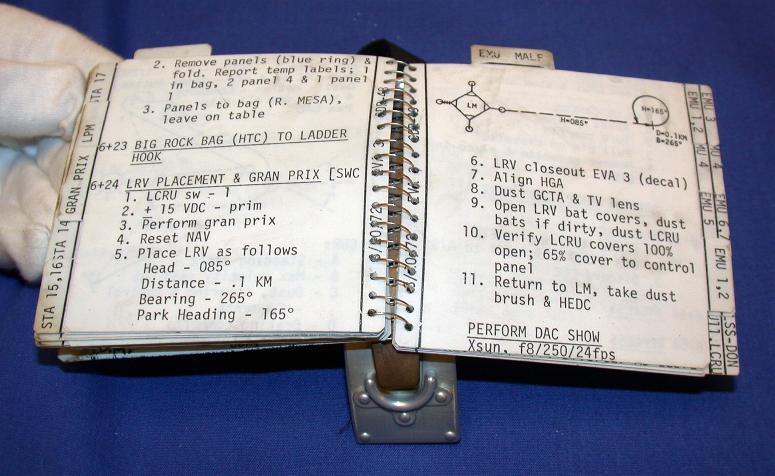 EMU MALF
2. Remove panels (blue ring) &
fold. Report temp labels; 1
in bag, 2 panel 4 & 1 panel
1
3. Panels to bag (R. MESA),
leave on table
6+23 BIG ROCK BAG (HTC) TO LADDER
HOOK
6+24 LRV PLACEMENT & GRAN PRIX [SWC
1. LCRU sw - 1
2. + 15 VDC - prim
3. Perform gran prix
4. Reset NAV
5. Place LRV as follows
Head - 085°
Distance - .1 KM
Bearing - 265°
Park Heading - 165°
STA 17
LPM
GRAN PRIX
STA 14
STA 15,16
EVA 3
LM
H=085°
H=165°
D=0.1KM
B=265°
6. LRV closeout EVA 3 (decal)
7. Align HGA
8. Dust GCTA & TV lens
9. Open LRV bat covers, dust
bats if dirty, dust LCRU
10. Verify LCRU covers 100%
open; 65% cover to control
panel
11. Return to LM, take dust
brush & HEDC
PERFORM DAC SHOW
Xsun, f8/250/24fps
EMU 3
EMU 1,2
EMU 4
EMU 5
EMU 6,7
EMU 1,2
LCRU